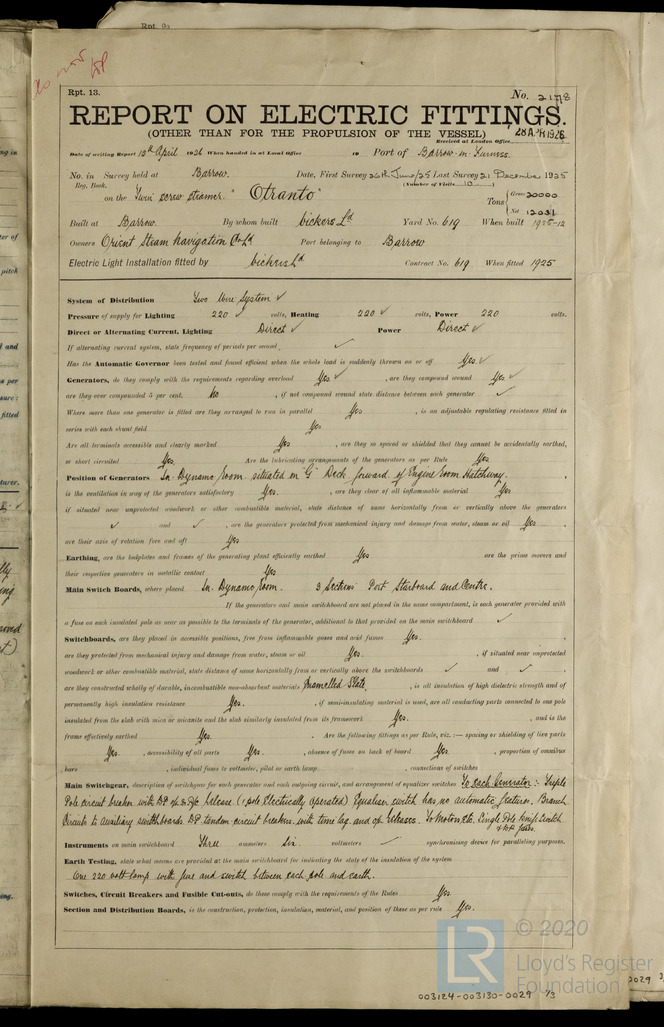 Rpt. 13.
No. 2178
REPORT ON ELECTRIC FITTINGS.
(OTHER THAN FOR THE PROPULSION OF THE VESSEL)
Received at London Office
Date of writing Report 13th April 1926 When handed in at Local Office 19 Port of Barrow-in-Furness
No. in Survey held at Barrow. Date, First Survey 26th June/25 Last Survey 21 December 1925
Reg. Book. (Number of Visits 10)
on the Twin screw steamer "Otranto" Tons { Gross 20000
Net 12031
Built at Barrow. By whom built Vickers Ld Yard No. 619 When built 1925-12
Owners Orient Steam Navigation Co Ld Port belonging to Barrow
Electric Light Installation fitted by Vickers Ld Contract No. 619 When fitted 1925
System of Distribution Two Wire System ✓
Pressure of supply for Lighting 220 ✓ volts, Heating 220 ✓ volts, Power 220 volts.
Direct or Alternating Current, Lighting Direct ✓ Power Direct ✓
If alternating current system, state frequency of periods per second ✓
Has the Automatic Governor been tested and found efficient when the whole load is suddenly thrown on or off Yes. ✓
Generators, do they comply with the requirements regarding overload Yes ✓, are they compound wound Yes ✓
are they over compounded 5 per cent. No, if not compound wound state distance between each generator ✓
Where more than one generator is fitted are they arranged to run in parallel Yes, is an adjustable regulating resistance fitted in
series with each shunt field Yes
Are all terminals accessible and clearly marked Yes, are they so spaced or shielded that they cannot be accidentally earthed,
or short circuited Yes. Are the lubricating arrangements of the generators as per Rule Yes.
Position of Generators In Dynamo Room situated on "G" Deck forward of Engine Room Hatchway.
is the ventilation in way of the generators satisfactory Yes., are they clear of all inflammable material Yes
if situated near unprotected woodwork or other combustible material, state distance of same horizontally from or vertically above the generators
✓ and ✓, are the generators protected from mechanical injury and damage from water, steam or oil Yes,
are their axis of rotation fore and aft Yes
Earthing, are the bedplates and frames of the generating plant efficiently earthed Yes are the prime movers and
their respective generators in metallic contact Yes
Main Switch Boards, where placed In Dynamo Room. 3 Sections Port Starboard and Centre.
If the generators and main switchboard are not placed in the same compartment, is each generator provided with
a fuse on each insulated pole as near as possible to the terminals of the generator, additional to that provided on the main switchboard ✓
Switchboards, are they placed in accessible positions, free from inflammable gases and acid fumes Yes.
are they protected from mechanical injury and damage from water, steam or oil Yes., if situated near unprotected
woodwork or other combustible material, state distance of same horizontally from or vertically above the switchboards ✓ and ✓,
are they constructed wholly of durable, incombustible non-absorbent materials Enamelled Slate, is all insulation of high dielectric strength and of
permanently high insulation resistance Yes., if semi-insulating material is used, are all conducting parts connected to one pole
insulated from the slab with mica or micanite and the slab similarly insulated from its framework Yes., and is the
frame effectively earthed Yes. Are the following fittings as per Rule, viz.:— spacing or shielding of live parts
Yes., accessibility of all parts Yes., absence of fuses on back of board Yes, proportion of omnibus
bars, individual fuses to voltmeter, pilot or earth lamp, connections of switches
Main Switchgear, description of switchgear for each generator and each outgoing circuit, and arrangement of equalizer switches To each Generator :- Triple
Pole circuit breaker with D.P. release (1 pole Electrically operated) Equaliser switch has no automatic features. Branch
Circuits to Auxiliary switchboards DP tandem circuit breakers with time lag and o/l releases. To Motors etc. Single Pole Knife Switch
& D.P. fuses.
Instruments on main switchboard Three ammeters Six voltmeters ✓ synchronising device for paralleling purposes.
Earth Testing, state what means are provided at the main switchboard for indicating the state of the insulation of the system
One 220 volt lamp with fuse and switch between each pole and earth.
Switches, Circuit Breakers and Fusible Cut-outs, do these comply with the requirements of the Rules Yes.
Section and Distribution Boards, is the construction, protection, insulation, material, and position of these as per rule Yes.
© 2020
LR
Lloyd's Register
Foundation
003124-003130-0029 1/3